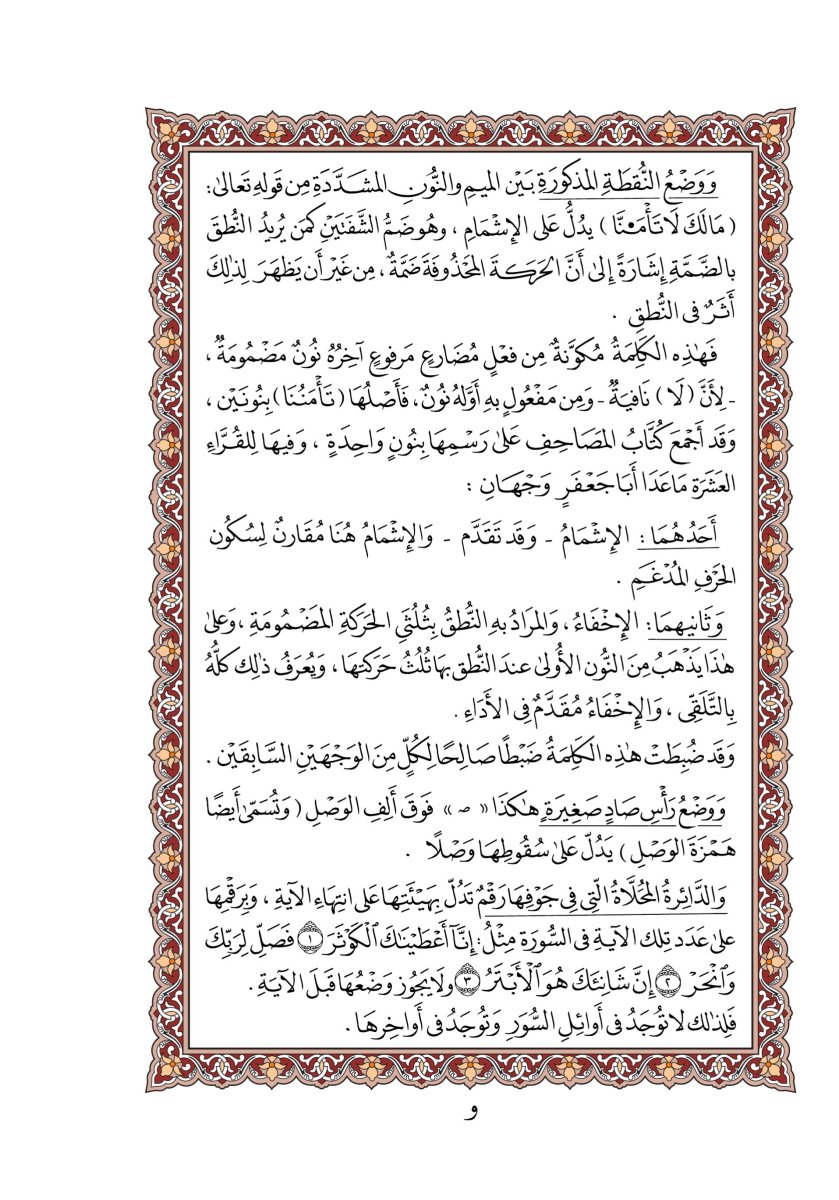 وَوَضْعُ النُّقطَةِ المذكورَةِ بَيْن الميمِ والنُّونِ المشَدَّدَةِ مِن قَولِهِ تَعَالىٰ:
( مَالَكَ لَا تَأْمَ۬نَّا ) يدُلُّ عَلى الإِشْمَامِ ، وهُو ضَمُّ الشَّفَتَيْنِ كَمَن يُريدُ النُّطقَ
بالضَّمَّةِ إشارَةً إِلىٰ أَنَّ الحَرَكَةَ المَحْذُوفَةَ ضَمَّةٌ ، مِن غَيْرِ أَن يَظهَرَ لِذٰلِكَ
أَثَرٌ فى النُّطقِ .
فَهَٰذِه الكَلِمَةُ مُكوَّنَةٌ مِن فعْلٍ مُضَارِعٍ مَرفوعٍ آخِرُهُ نُونٌ مَضْمُومَةٌ ،
- لِأَنَّ ( لَا ) نَافِيَةٌ - وَمِن مَفْعُولٍ بهِ أَوَّلُهُ نُونٌ ، فَأَصْلُهَا ( تَأْمَنُنَا ) بِنُونَيْن ،
وَقَد أَجْمَعَ كُتَّابُ المَصَاحِفِ عَلىٰ رَسْمِهَا بِنُونٍ وَاحِدَةٍ ، وَفيهَا لِلقُرَّاءِ
العَشَرَة مَاعَدَا أَبَا جَعْفَرٍ وَجْهَانِ :
أَحَدُهُمَا : الإِشْمَامُ - وَقَد تَقَدَّم - وَالإِشْمَامُ هُنَا مُقَارنٌ لِسُكُون
الحَرْفِ المُدْغَمِ .
وَثَانيهِمَا : الإِخْفَاءُ ، وَالمرَادُ بهِ النُّطْقُ بِثُلُثَيِ الحَرَكَةِ المَضْمُومَةِ ، وَعَلىٰ
هٰذَا يَذْهَبُ مِنَ النُّون الأُولىٰ عندَ النُّطق بهَا ثُلُثُ حَرَكَتِهَا ، وَيُعرَفُ ذٰلِك كلُّهُ
بِالتَّلَقِّى ، وَالإِخْفَاءُ مُقَدَّمٌ فِى الأَدَاءِ .
وَقَد ضُبِطَتْ هٰذِه الكَلِمَةُ ضَبْطًا صَالِحًا لِكُلٍّ مِنَ الوَجْهَيْنِ السَّابِقَيْن .
وَوَضْعُ رَأْسِ صَادٍ صَغِيرَةٍ هٰكذَا « ص » فَوقَ أَلِفِ الوَصْلِ ( وَتُسَمّىٰ أَيضًا
هَمْزَةَ الوَصْلِ ) يَدُلّ عَلىٰ سُقُوطِهَا وَصْلًا .
وَالدَّائِرةُ المُحَلَّاةُ الّتِى فِى جَوْفِهَا رَقْمٌ تَدُلّ بِهَيْئَتِهَا عَلى انتِهَاءِ الآيَةِ ، وَبِرَقْمِهَا
عَلىٰ عَدَد تِلك الآيَةِ فى السُّورَة مِثْلُ : إِنَّآ أَعْطَيْنَٰكَ ٱلْكَوْثَرَ ١ فَصَلِّ لِرَبِّكَ
وَٱنْحَرْ ٢ إِنَّ شَانِئَكَ هُوَ ٱلْأَبْتَرُ ٣ ولَا يَجُوز وَضْعُهَا قَبلَ الآيَةِ .
فَلِذٰلِك لا تُوجَدُ فى أَوائِلِ السُّوَرِ وَتُوجَدُ فى أَواخِرِهَا .
و